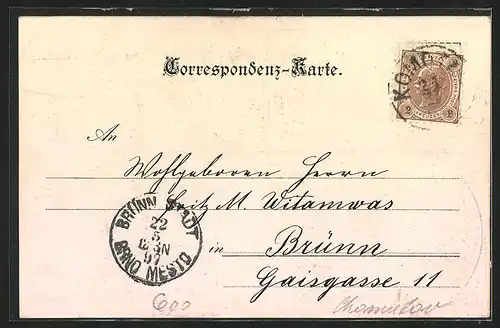 Correspondenz-Karte.
KOMO
2 2
An
Wohlgeboren Herrn
Fritz M. Witamwas
in Brünn
Gaisgasse 11
BRÜNN STADT
22
5
97
BRNO MESTO
600
Chomutov